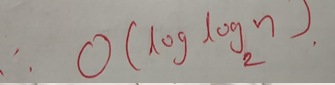 ∴ O(log log₂n).